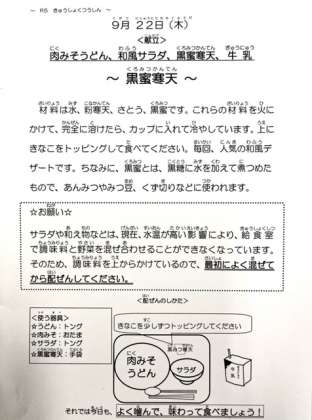 ～ R5 きゅうしょくつうしん ～
9月 22日(木)
<献立>
肉みそうどん、和風サラダ、黒蜜寒天、牛乳
～ 黒蜜寒天 ～
材料は水、粉寒天、さとう、黒蜜です。これらの材料を火に
かけて、完全に溶けたら、カップに入れて冷やしています。上に
きなこをトッピングして食べてください。毎回、人気の和風デ
ザートです。ちなみに、黒蜜とは、黒糖に水を加えて煮つめた
もので、あんみつやみつ豆、くず切りなどに使われます。
☆お願い☆
サラダや和え物などは、現在、水温が高い影響により、給食室
で調味料と野菜を混ぜ合わせることができなくなっています。
そのため、調味料を上からかけているので、最初によく混ぜて
から配ぜんしてください。
<配ぜんのしかた>
<使う器具>
☆うどん：トング
☆肉みそ：おたま
☆サラダ：トング
☆黒蜜寒天：手袋
きなこを少しずつトッピングしてください
黒みつ寒天
肉みそ
うどん
サラダ
牛乳
それでは今日も、よく噛んで、味わって食べましょう！